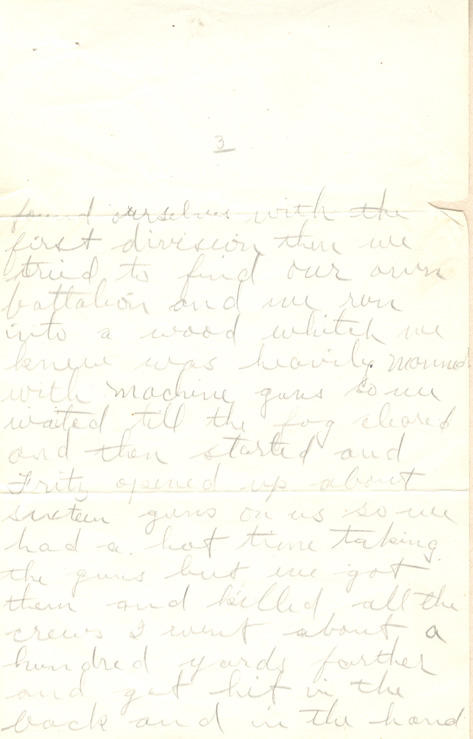 3
found ourselves with the
first division then we
tried to find our own
battalion and we run
into a wood whitch we
knew was heavily manned
with machine guns so we
waited till the fog cleared
and then started and
Fritz opened up about
sixteen guns on us so we
had a hot time taking
the guns but we got
them and killed all the
crews I went about a
hundred yards farther
and got hit in the
back and in the hand